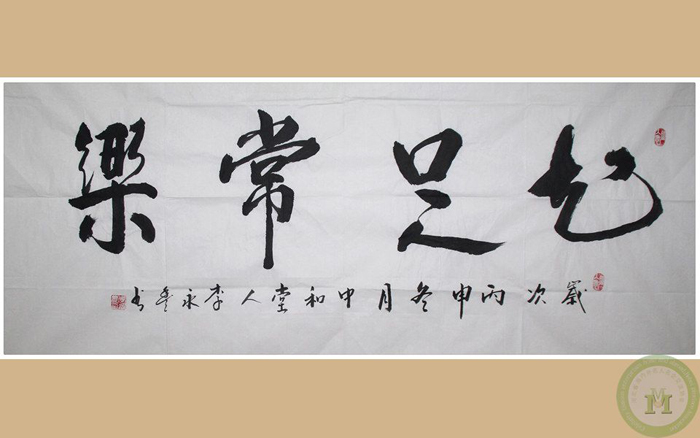 知足常樂
歲次丙申冬月中和堂人李永书